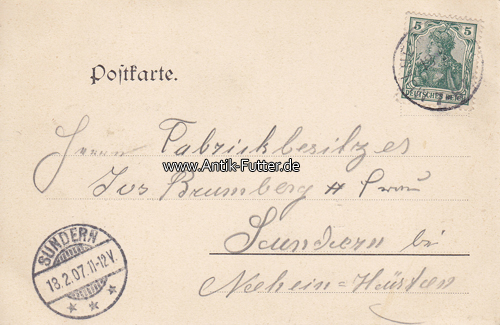 5 5
DEUTSCHES REICH
Postkarte.
Herrn Fabrikbesitzer
www.Antik-Futter.de
Jos Brumberg & Frau
Sundern bei
Neheim-Hüsten
SUNDERN
13.2.07.11-12V.